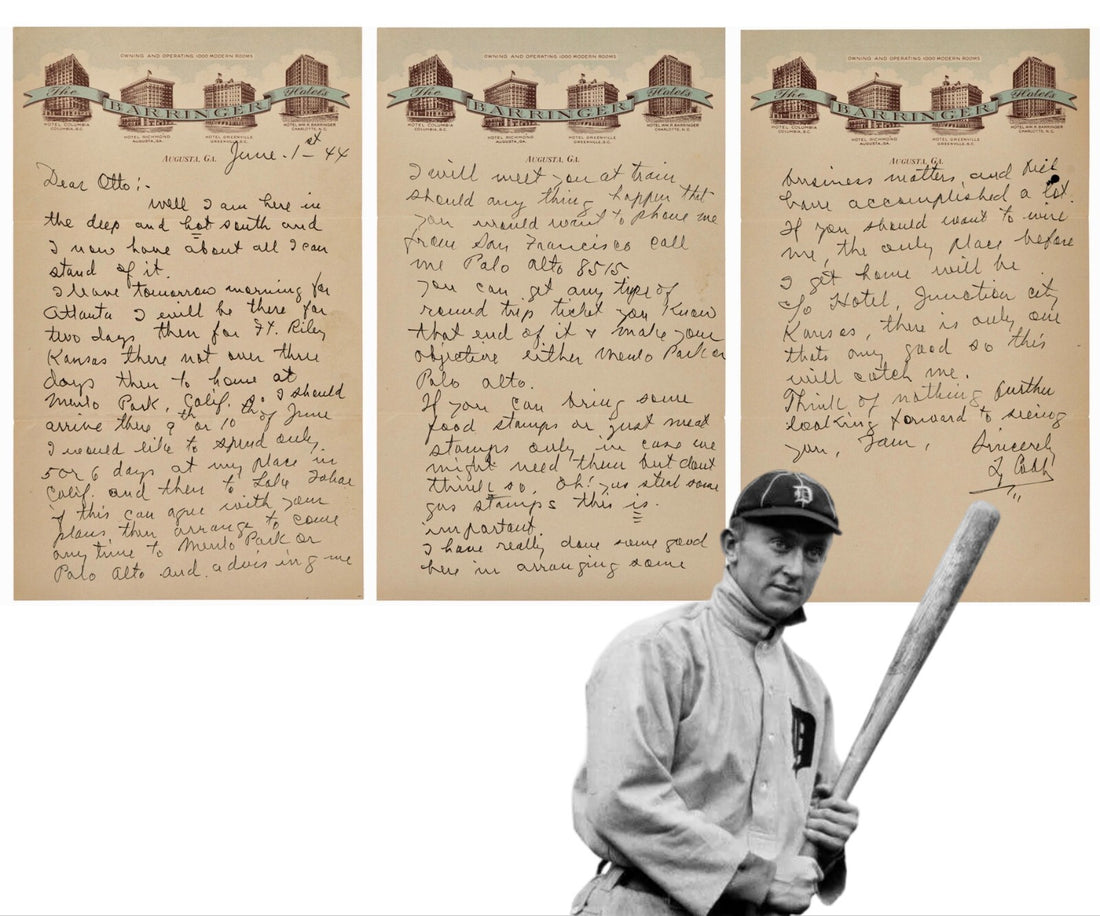 OWNING AND OPERATING 1000 MODERN ROOMS
The BARRINGER Hotels
HOTEL COLUMBIA
COLUMBIA, S.C.
HOTEL RICHMOND
AUGUSTA, GA.
HOTEL GREENVILLE
GREENVILLE, S.C.
HOTEL WM. R. BARRINGER
CHARLOTTE, N.C.
AUGUSTA, GA.
June. 1st 44
Dear Otto:-
well I am here in
the deep and hot south and
I now have about all I can
stand of it.
I leave tomorrow morning for
Atlanta I will be there for
two days then for Ft. Riley
Kansas there not over three
days then to home at
Menlo Park, Calif. So I should
arrive there 9th or 10th of June
I would like to spend only
5 or 6 days at my place in
Calif. and then to Lake Tahoe
if this can agree with your
plans, then arrange to come
any time to Menlo Park or
Palo Alto and advising me
OWNING AND OPERATING 1000 MODERN ROOMS
The BARRINGER Hotels
HOTEL COLUMBIA
COLUMBIA, S.C.
HOTEL RICHMOND
AUGUSTA, GA.
HOTEL GREENVILLE
GREENVILLE, S.C.
HOTEL WM. R. BARRINGER
CHARLOTTE, N.C.
AUGUSTA, GA.
I will meet you at train
should any thing happen that
you would want to phone me
from San Francisco call
me Palo Alto 8515
you can get any type of
round trip ticket you know
that end of it & make your
objective either Menlo Park or
Palo Alto.
If you can bring some
food stamps or just meat
stamps only in case we
might need them but dont
think so. Oh! yes steal some
gas stamps this is
important.
I have really done some good
here in arranging some
OWNING AND OPERATING 1000 MODERN ROOMS
The BARRINGER Hotels
HOTEL COLUMBIA
COLUMBIA, S.C.
HOTEL RICHMOND
AUGUSTA, GA.
HOTEL GREENVILLE
GREENVILLE, S.C.
HOTEL WM. R. BARRINGER
CHARLOTTE, N.C.
AUGUSTA, GA.
business matters, and
have accomplished a lot.
If you should want to wire
me, the only place before
I get home will be
c/o Hotel, Junction city
Kansas, there is only one
thats any good so this
will catch me.
Think of nothing further
looking forward to seeing
you, I am, Sincerely
Ty Cobb
D
D